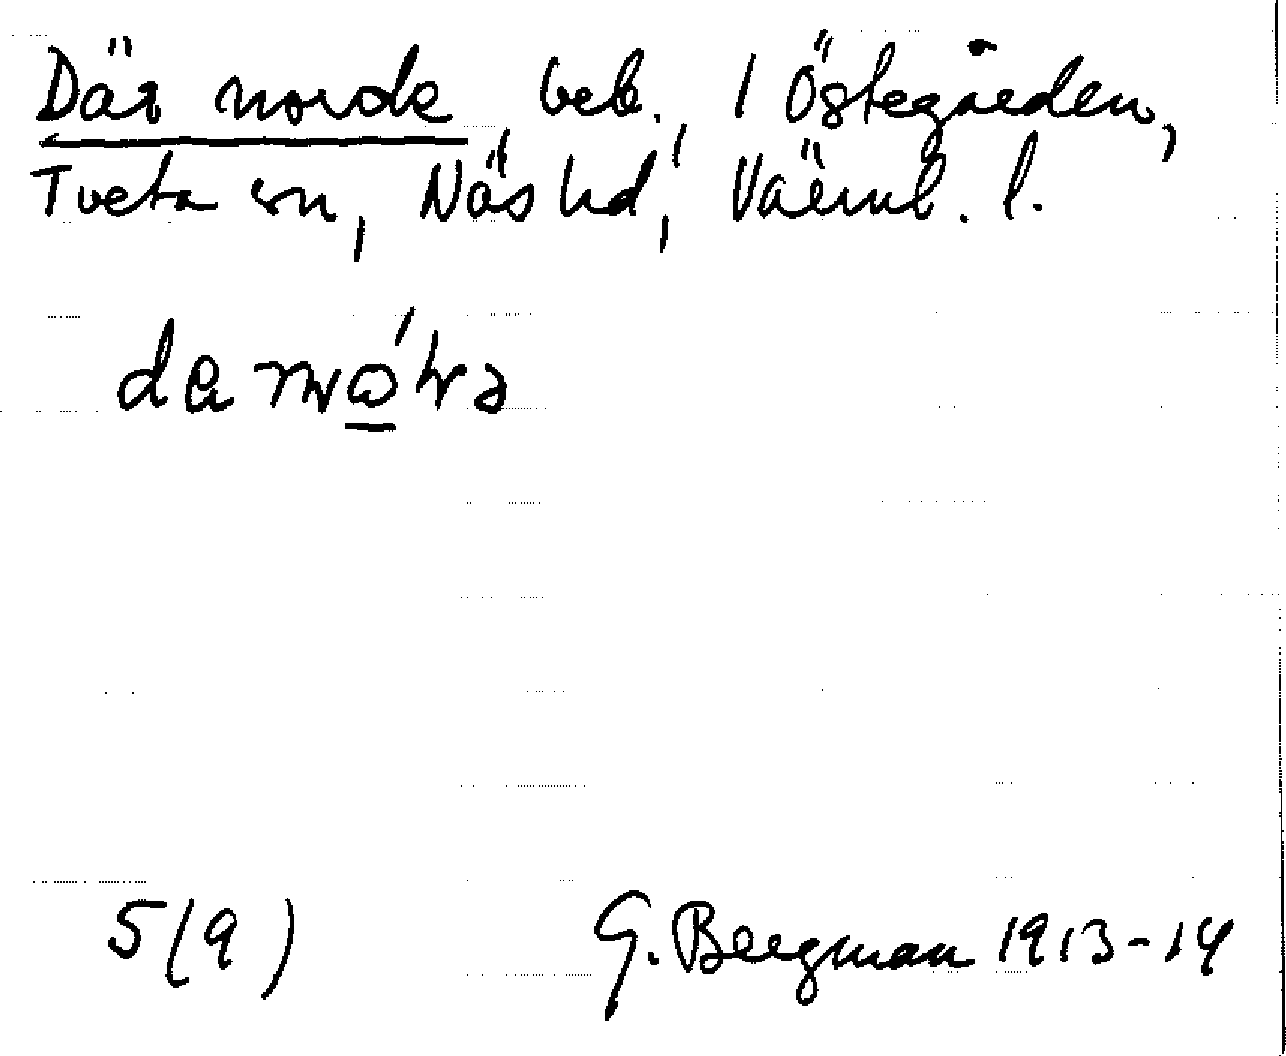 Där norde, beb., 1 Östegården,
Tveta sn, Näs hd, Värml. l.
5(9) G. Bergman 1913-14